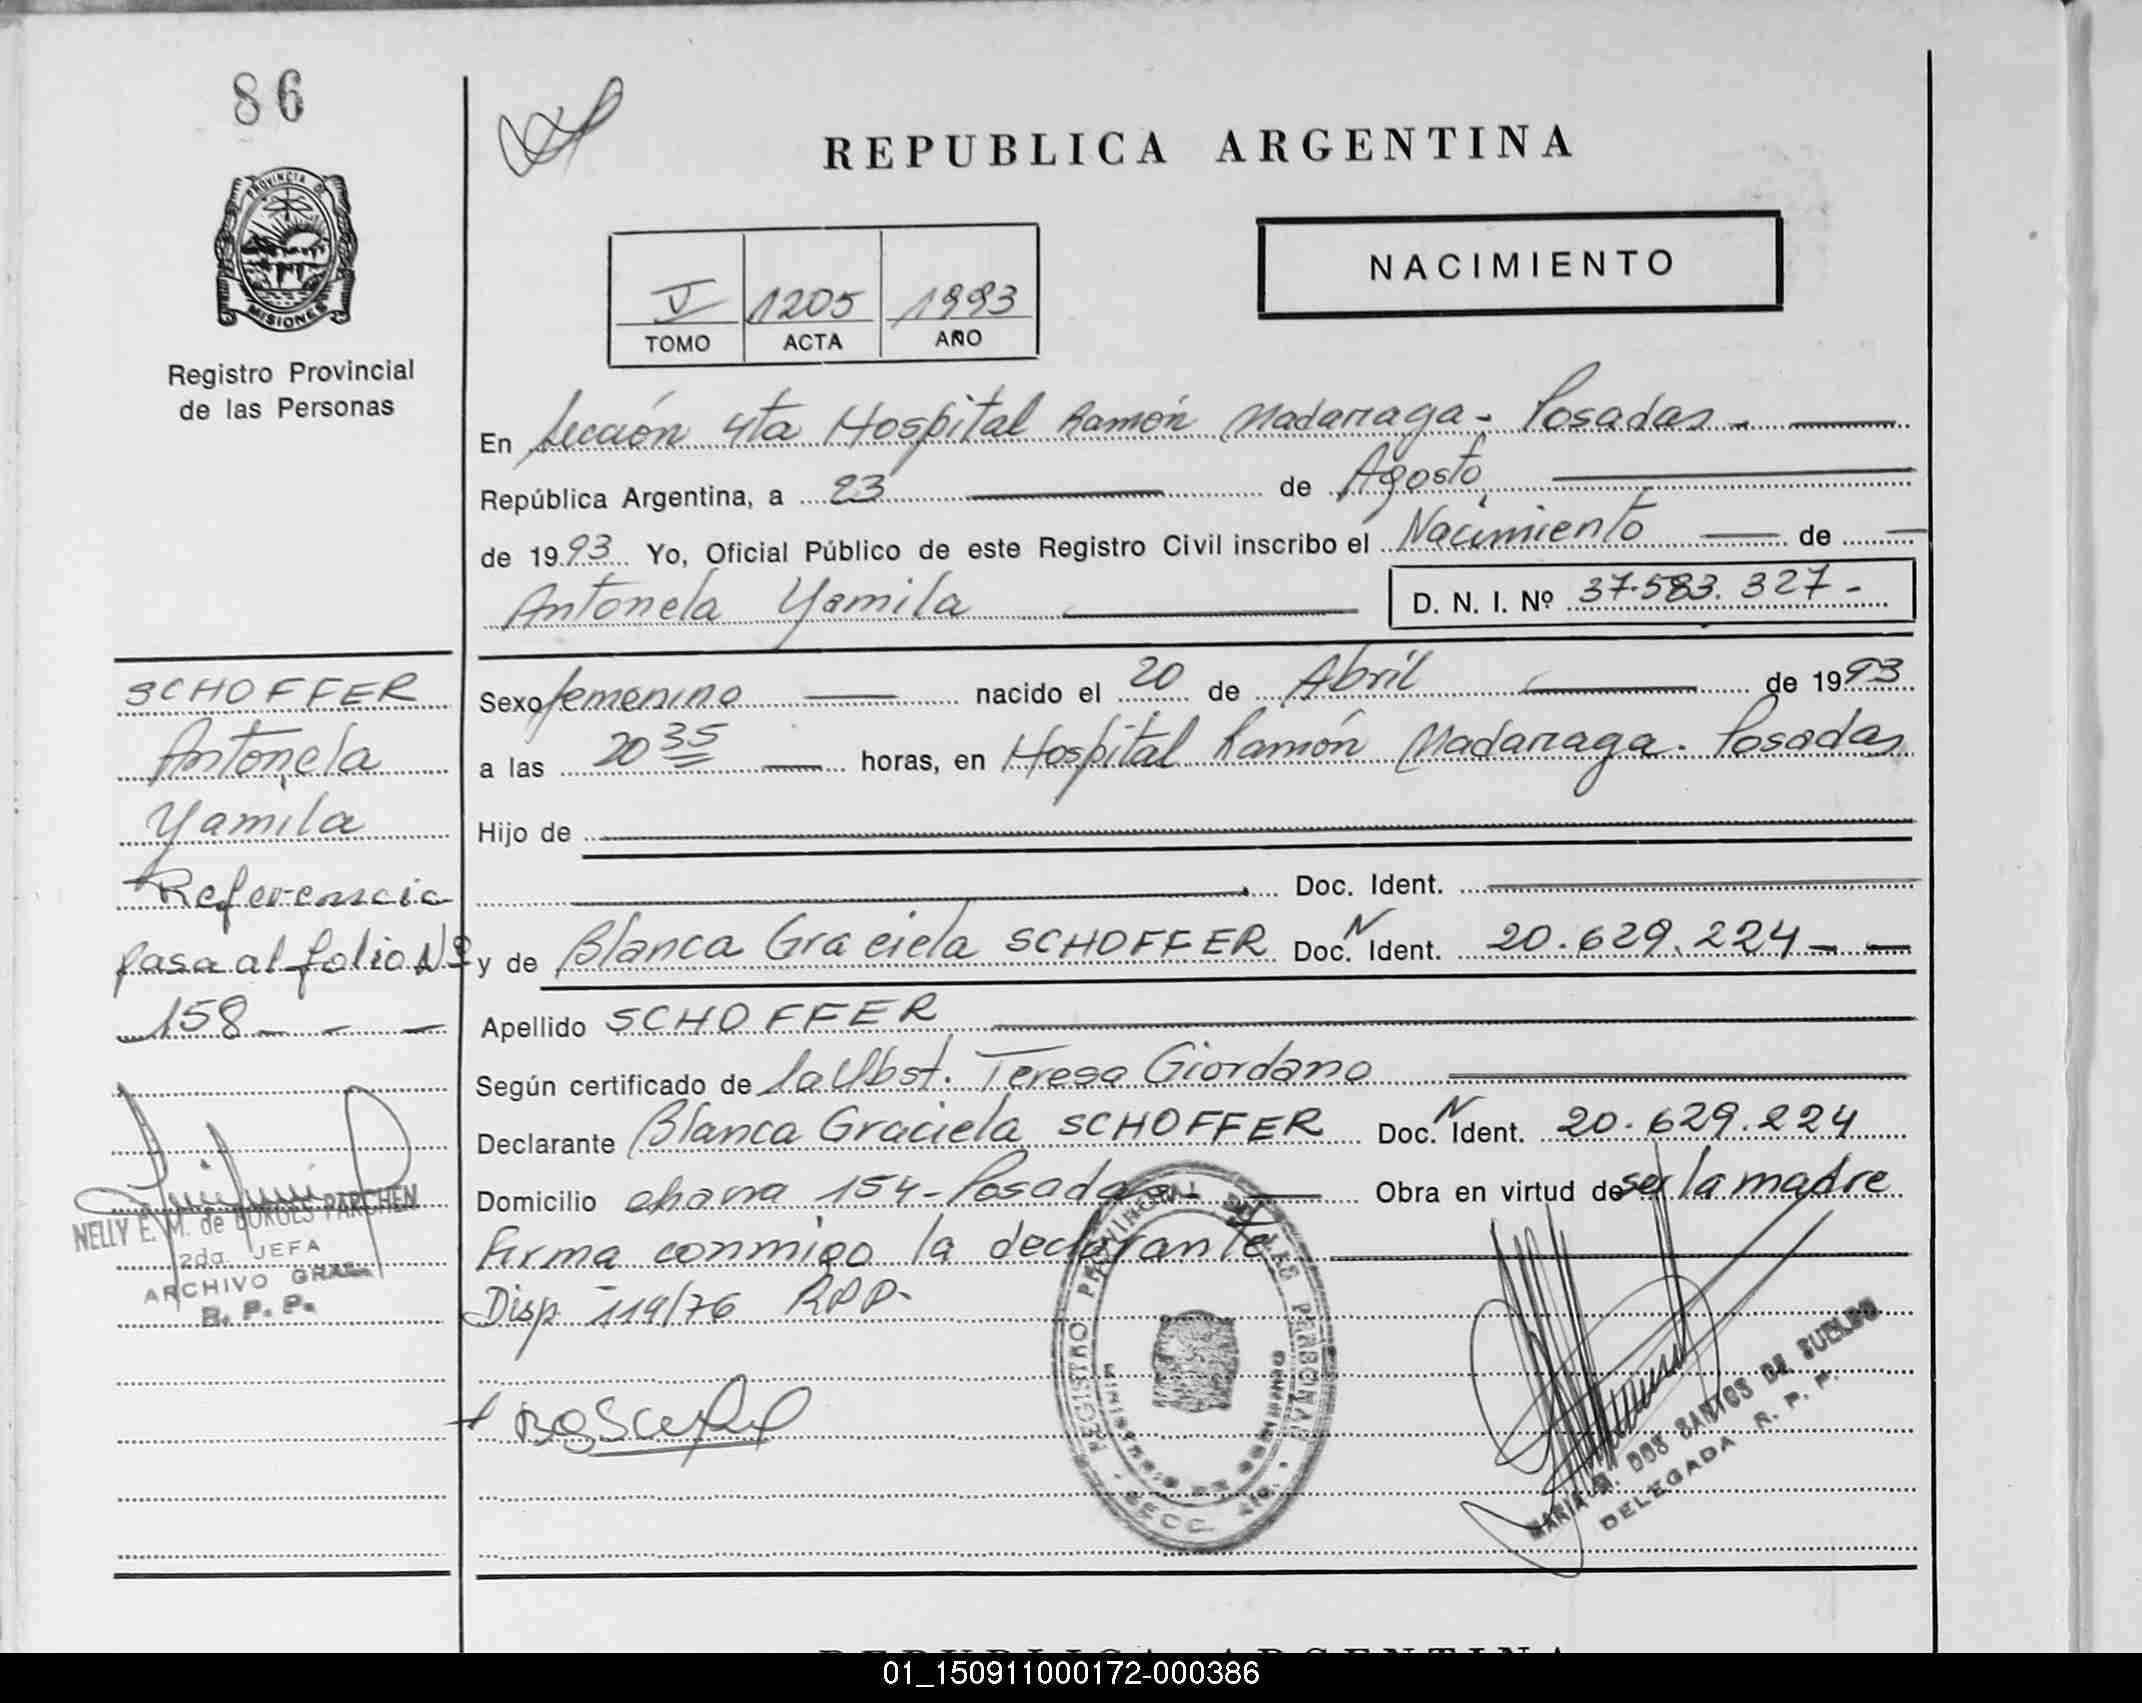 86
REPUBLICA ARGENTINA
PROVINCIA DE
MISIONES
Registro Provincial
de las Personas
NACIMIENTO
V 1205 1993
TOMO ACTA AÑO
En Sección 4ta Hospital Ramón Madarraga - Posadas -
República Argentina, a 23 de Agosto
de 1993 Yo, Oficial Público de este Registro Civil inscribo el Nacimiento de
Antonela Yamila D. N. I. Nº 37.583.327-
SCHOFFER
Antonela
Yamila
Referencia
pasa al folio Nº
158 - - -
NELLY E. M. de BORGES PARCHEN
2da. JEFA
ARCHIVO GRAL.
R. P. P.
Sexo femenino nacido el 20 de Abril de 1993
a las 20 35 horas, en Hospital Ramón Madarraga - Posadas
Hijo de
Doc. Ident.
y de Blanca Graciela SCHOFFER Doc. N Ident. 20.629.224 - -
Apellido SCHOFFER
Según certificado de la Obst. Teresa Giordano
Declarante Blanca Graciela SCHOFFER Doc. N Ident. 20.629.224
Domicilio chacra 154 - Posadas - Obra en virtud de ser la madre
Firma conmigo la declarante
Disp 119/76 RPP-
REGISTRO PROVINCIAL DE LAS PERSONAS
MINISTERIO DE GOBIERNO
SECC. 4ta.
MARIA DOS SANTOS DE SUELDO
DELEGADA R. P. P.
REPUBLICA ARGENTINA
01_150911000172-000386